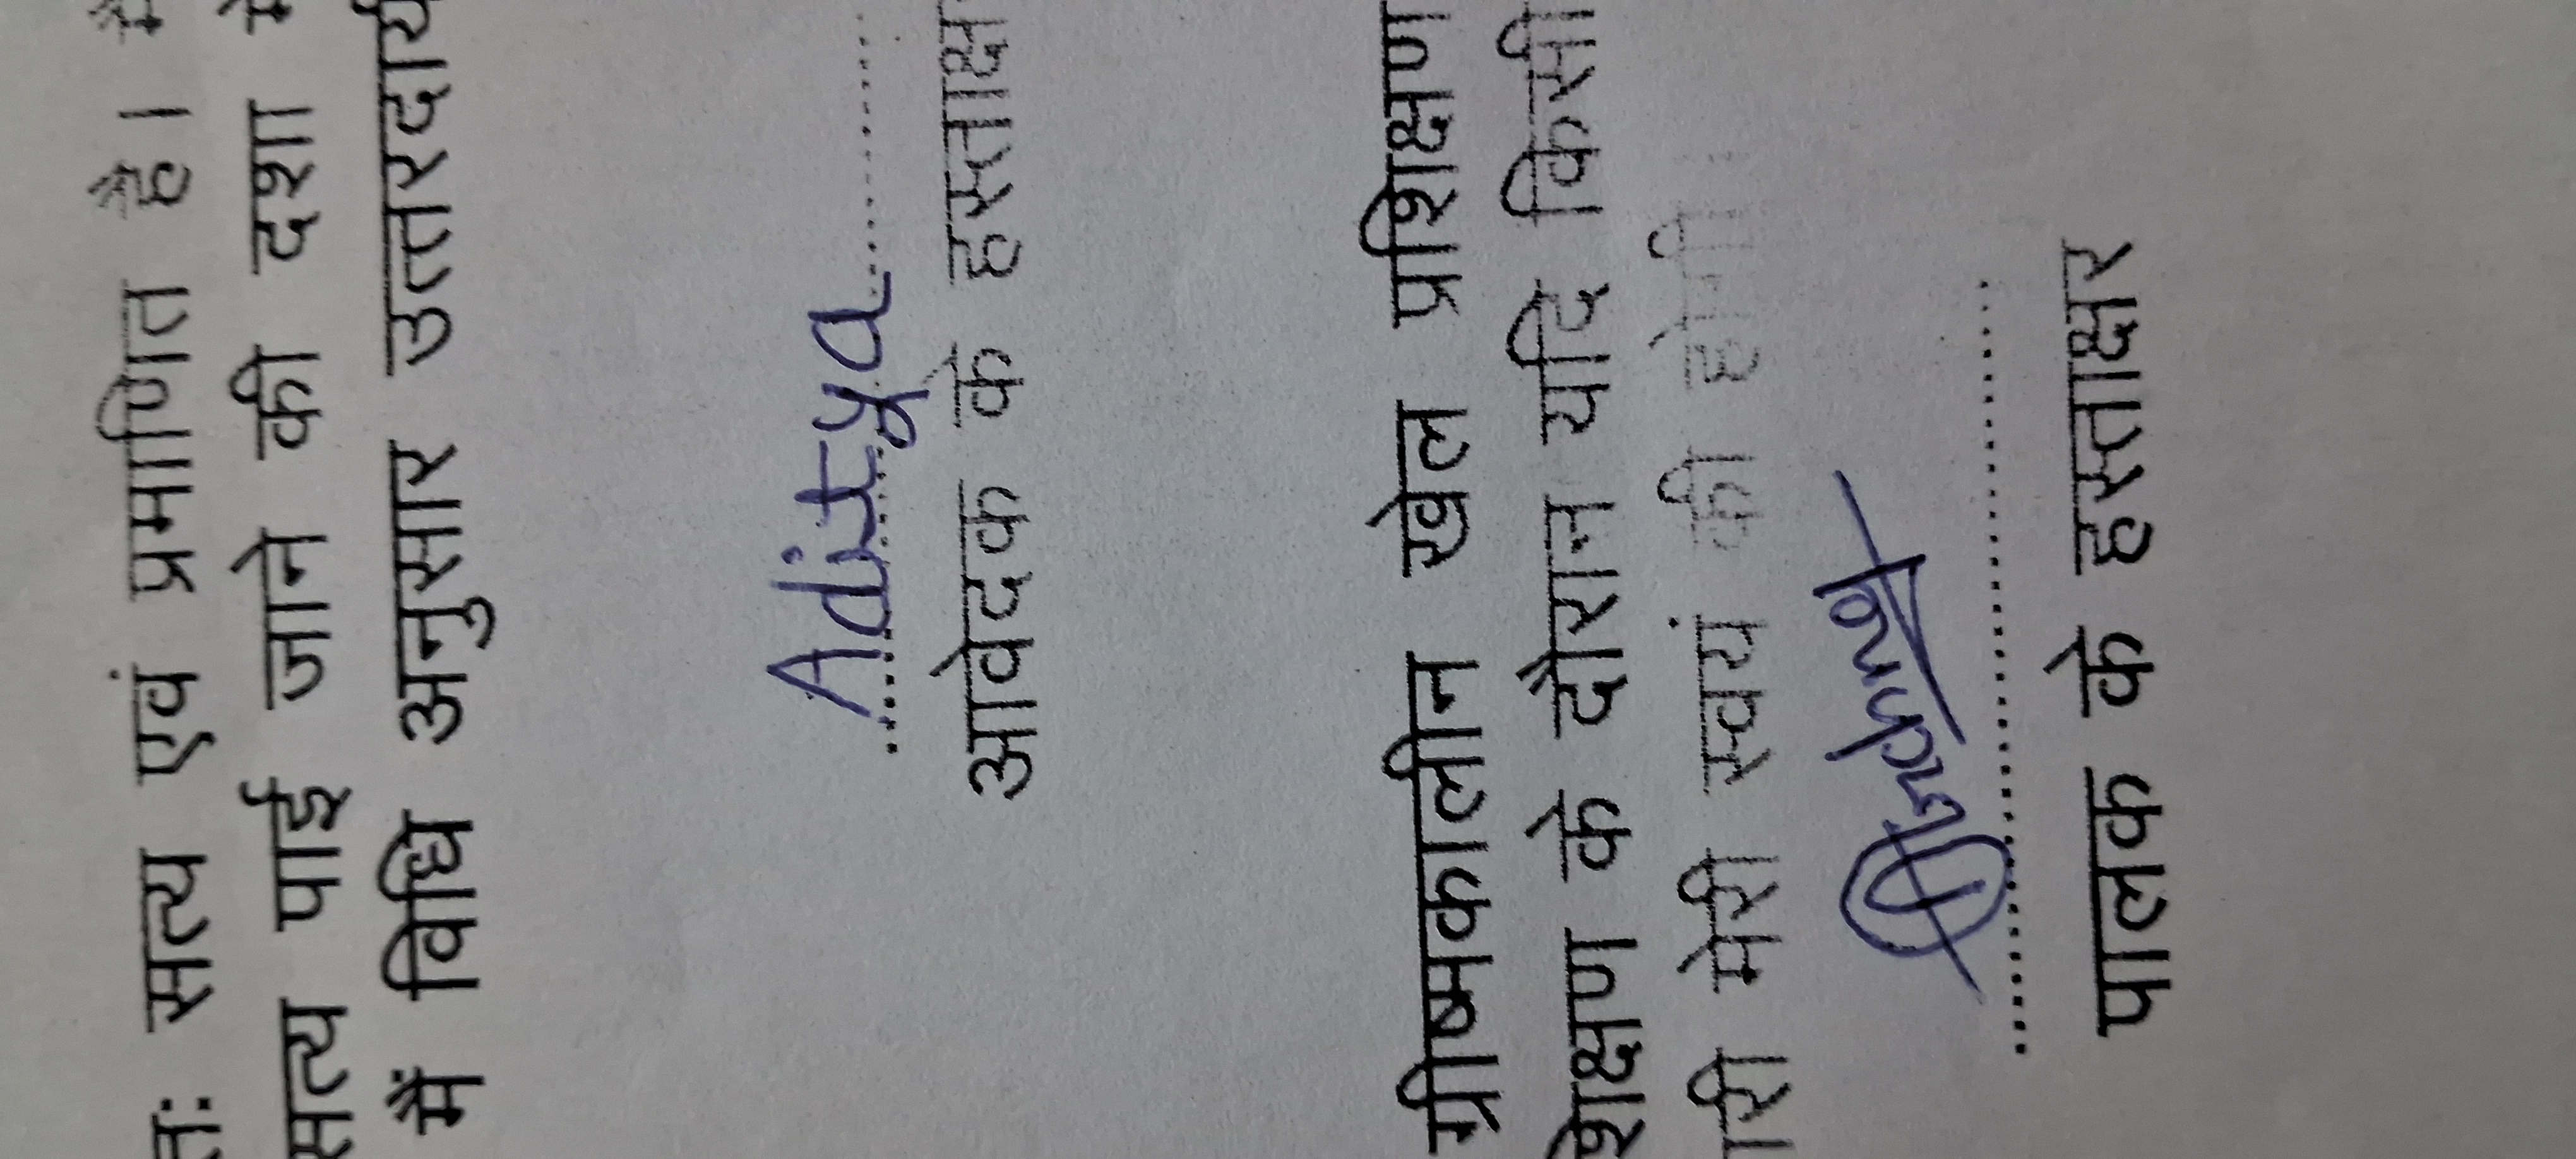 सत्य एवं प्रमाणित है। मैं
सत्य पाई जाने की दशा में
में विधि अनुसार उत्तरदायी
Aditya
आवेदक के हस्ताक्षर
ग्रीष्मकालीन खेल प्रशिक्षण
के दौरान यदि किसी
मेरी स्वयं की होगी।
पालक के हस्ताक्षर